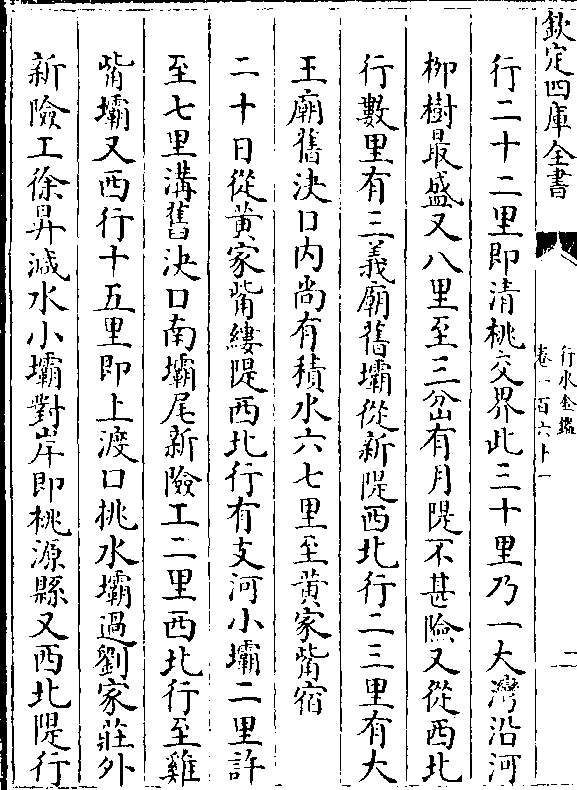 欽定四庫全書
行水金鑑
卷一百六十一
二
行二十二里即清桃交界此三十里乃一大灣沿河
栁樹最盛又八里至三岔有月隄不甚險又從西北
行數里有三義廟舊壩從新隄西北行二三里有大
王廟舊決口内尚有積水六七里至黄家嘴宿
二十日從黄家嘴縷隄西北行有支河小壩二里許
至七里溝舊決口南壩尾新險工二里西北行至雞
嘴壩又西行十五里即上渡口桃水壩過劉家莊外
新險工徐昇減水小壩對岸即桃源縣又西北隄行